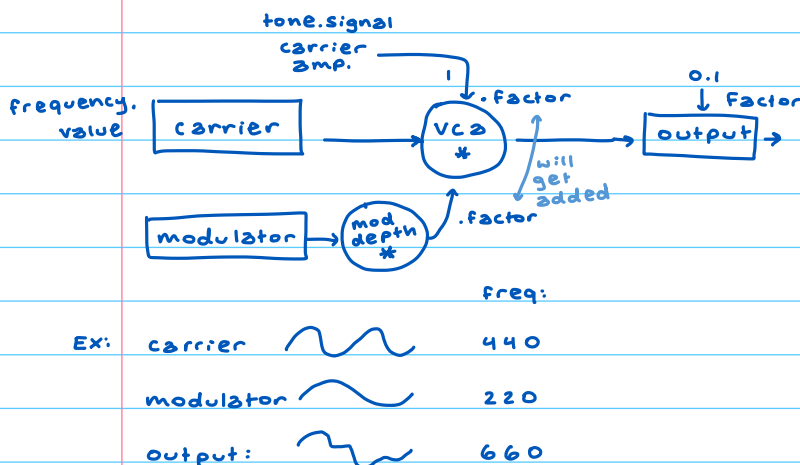 tone.signal
carrier
amp.
1
.factor
0.1
Factor
frequency.
value
carrier
vca
*
output
will
get
added
.factor
modulator
mod
depth
*
freq:
Ex:
carrier
440
modulator
220
output:
660